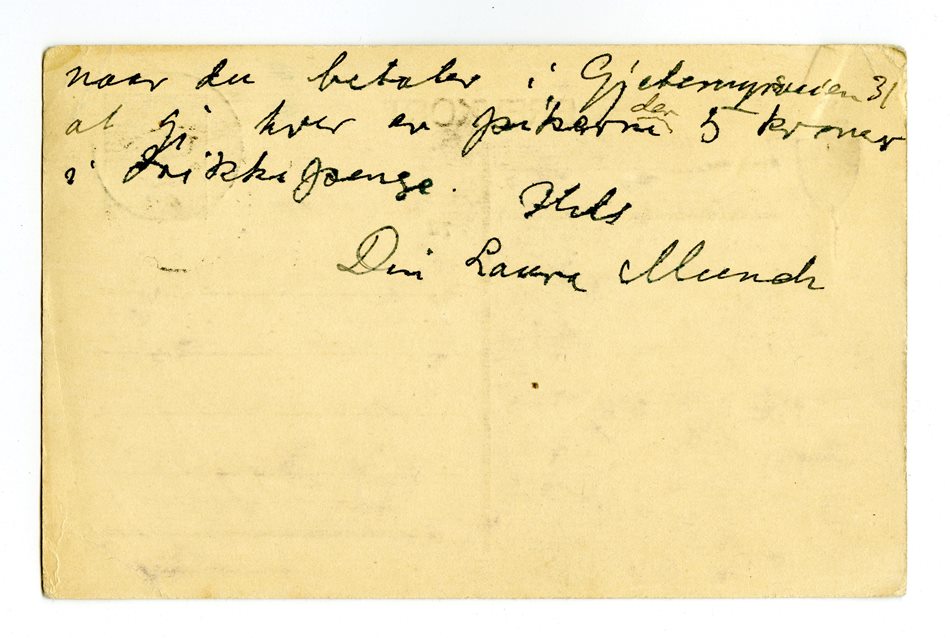 naar du betaler i Gjetemyrsveien 31
at gi hver av pikerne der 5 kroner
i Drikkepenge.
Hils
Din Laura Munch